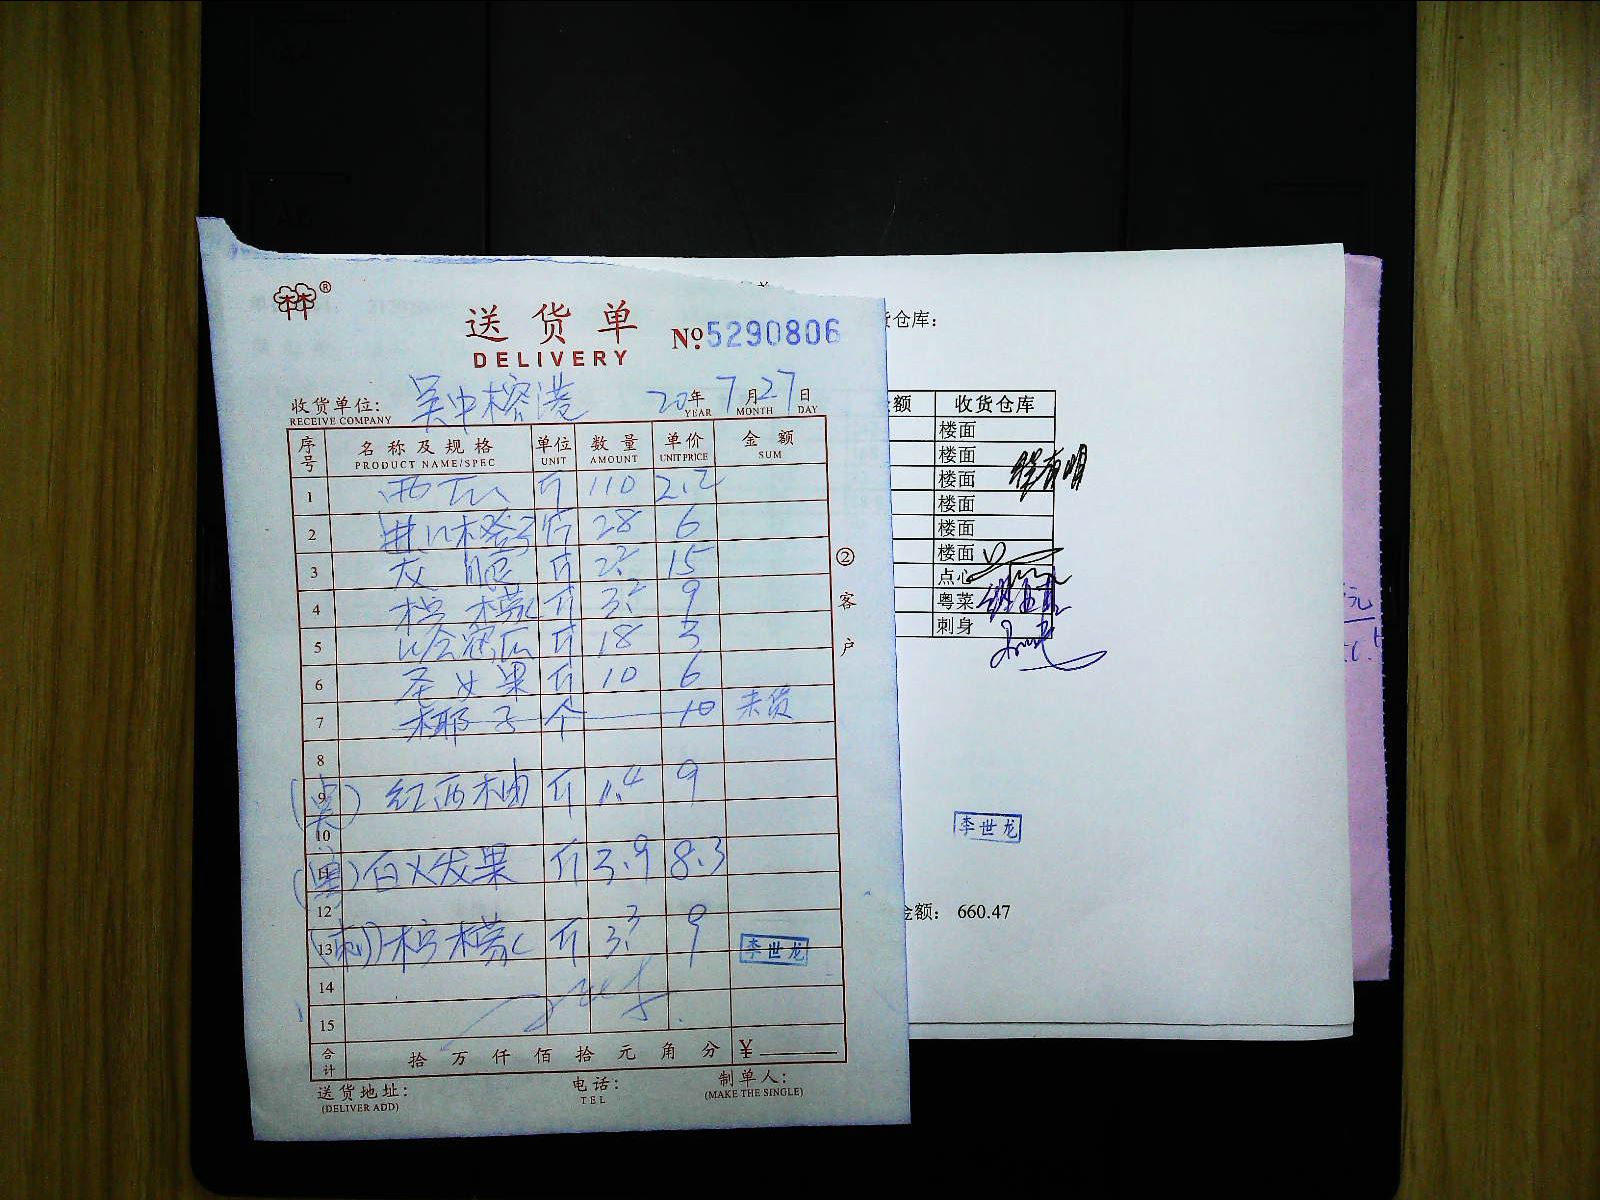 林®
送货单
DELIVERY
№ 5290806
收货单位: 吴中榕港 20年 7月27日
RECEIVE COMPANY YEAR MONTH DAY
序号 名称及规格 单位 数量 单价 金额
PRODUCT NAME/SPEC UNIT AMOUNT UNIT PRICE SUM
1 西瓜 斤 110 2.2
2 进口木橙子 斤 28 6
3 斤 2.2 15
4 柠檬 斤 3.2 9
5 哈密瓜 斤 18 3
6 圣女果 斤 10 6
7 椰子 个 10 未货
8
9 红西柚 斤 1.4 9
10
11 白火龙果 斤 3.9 8.3
12
13 (刺) 柠檬 斤 3.3 9
李世龙
14
15
合计 拾 万 仟 佰 拾 元 角 分 ¥
送货地址: 电话: 制单人:
(DELIVER ADD) TEL (MAKE THE SINGLE)
②客户
货仓库:
额 收货仓库
楼面
楼面
楼面
楼面
楼面
楼面
点心
粤菜
刺身
李世龙
金额: 660.47
元